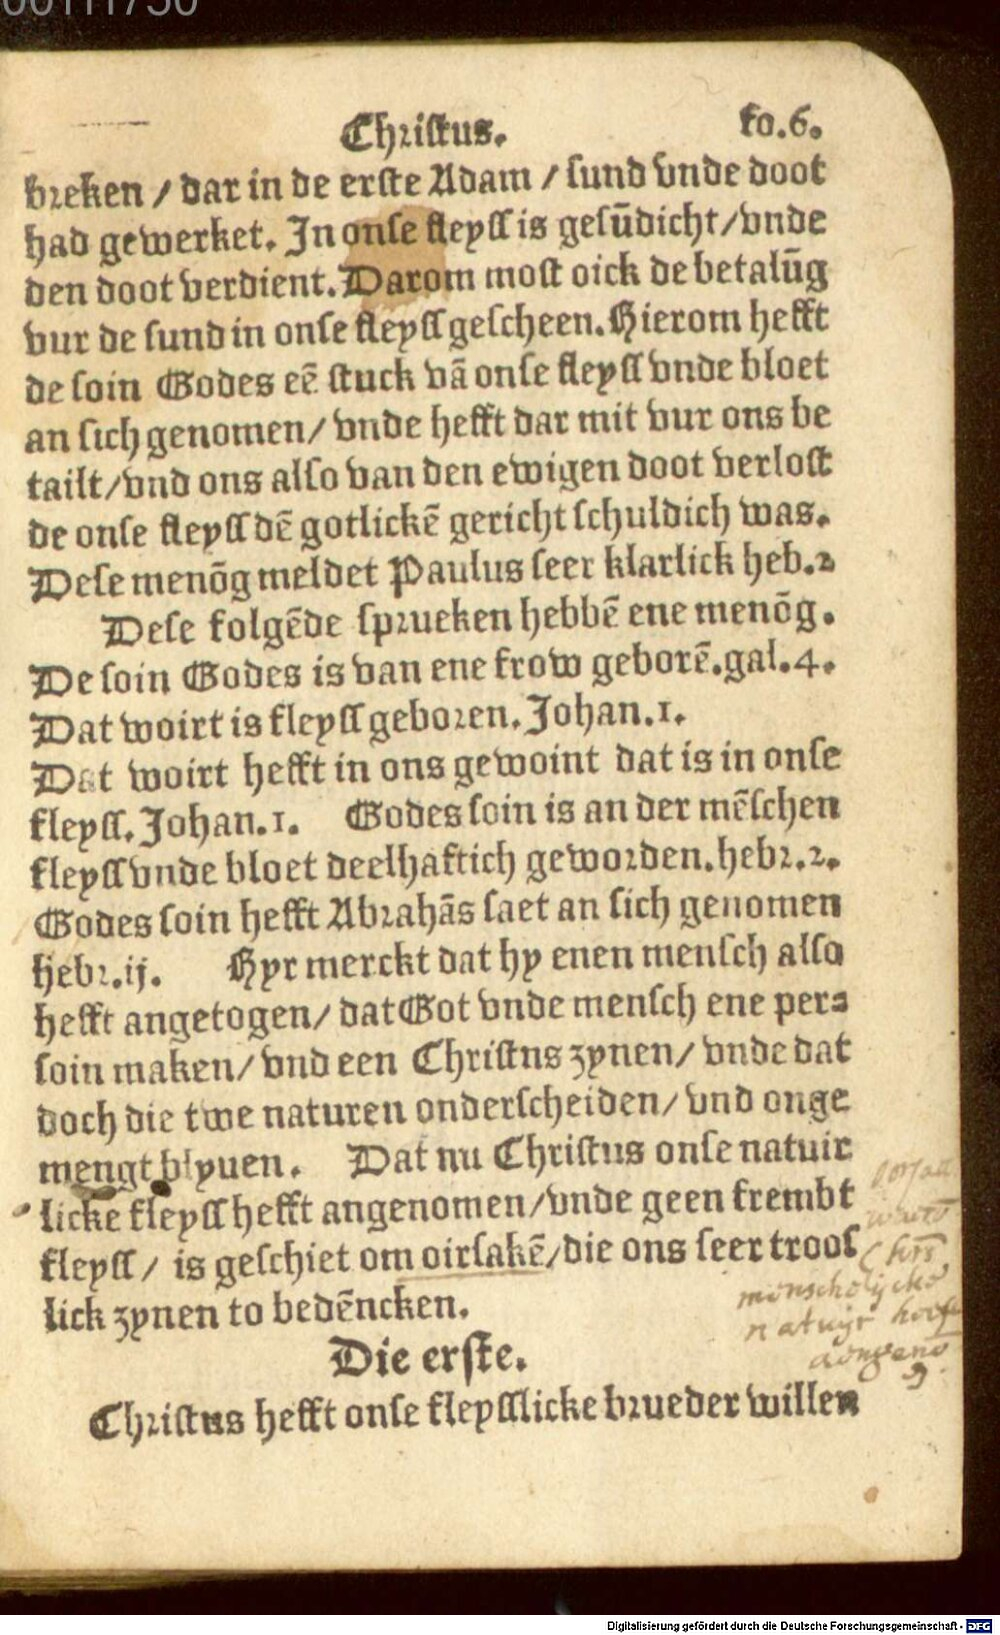 Christus. fo.6.
breken / dar in de erste Adam / sund vnde doot
had gewerket. In onse fleyss is gesūdicht/vnde
den doot verdient. Darom most oick de betalūg
vur de sund in onse fleyss gescheen. Hierom hefft
de soin Godes eē stuck vā onse fleyss vnde bloet
an sich genomen/ vnde hefft dar mit vur ons be
tailt/vnd ons also van den ewigen doot verlost
de onse fleyss dē gotlickē gericht schuldich was.
Dese menōg meldet Paulus seer klarlick heb.2
Dese folgēde sprueken hebbē ene menōg.
De soin Godes is van ene frow geborē.gal.4.
Dat woirt is fleyss geboren. Johan.1.
Dat woirt hefft in ons gewoint dat is in onse
fleyss. Johan.1. Godes soin is an der mēschen
fleyss vnde bloet deelhaftich geworden.hebr.2.
Godes soin hefft Abrahās saet an sich genomen
hebr.ij. Hyr merckt dat hy enen mensch also
hefft angetogen/ dat Got vnde mensch ene per=
soin maken/ vnd een Christns zynen/ vnde dat
doch die twe naturen onderscheiden/ vnd onge
mengt blyuen. Dat nu Christus onse natuir
licke fleyss hefft angenomen/vnde geen frembt
fleyss/ is geschiet om oirsakē/die ons seer troos
lick zynen to bedēncken.
Die erste.
Christns hefft onse fleysslicke brueder willen
oorsaec
menschelijcke
natuijr
Digitalisierung gefördert durch die Deutsche Forschungsgemeinschaft - DFG